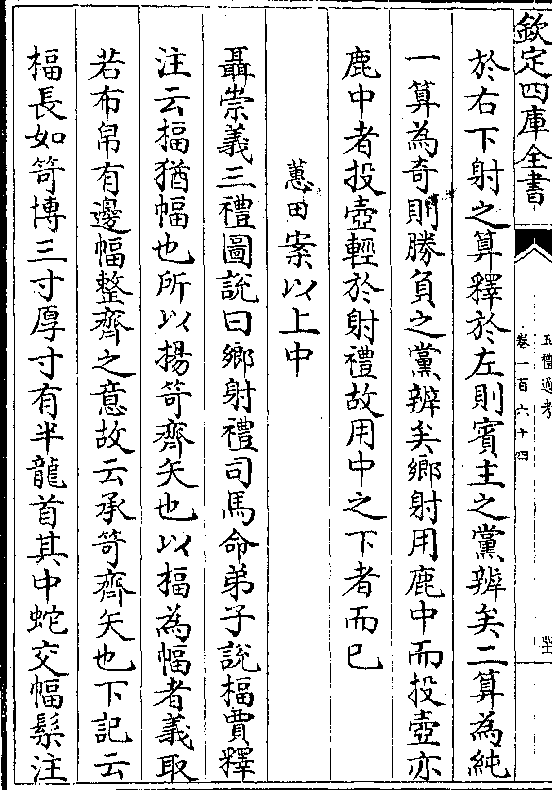 欽定四庫全書
五禮通考
卷一百六十四
於右下射之算釋於左則賓主之黨辨矣二算為純
一算為奇則勝負之黨辨矣鄉射用鹿中而投壺亦
鹿中者投壺輕於射禮故用中之下者而已
蕙田案以上中
聶崇義三禮圖說曰鄉射禮司馬命弟子說楅賈釋
注云楅猶幅也所以揚笴齊矢也以楅為幅者義取
若布帛有邊幅整齊之意故云承笴齊矢也下記云
楅長如笴博三寸厚寸有半龍首其中蛇交幅髤注